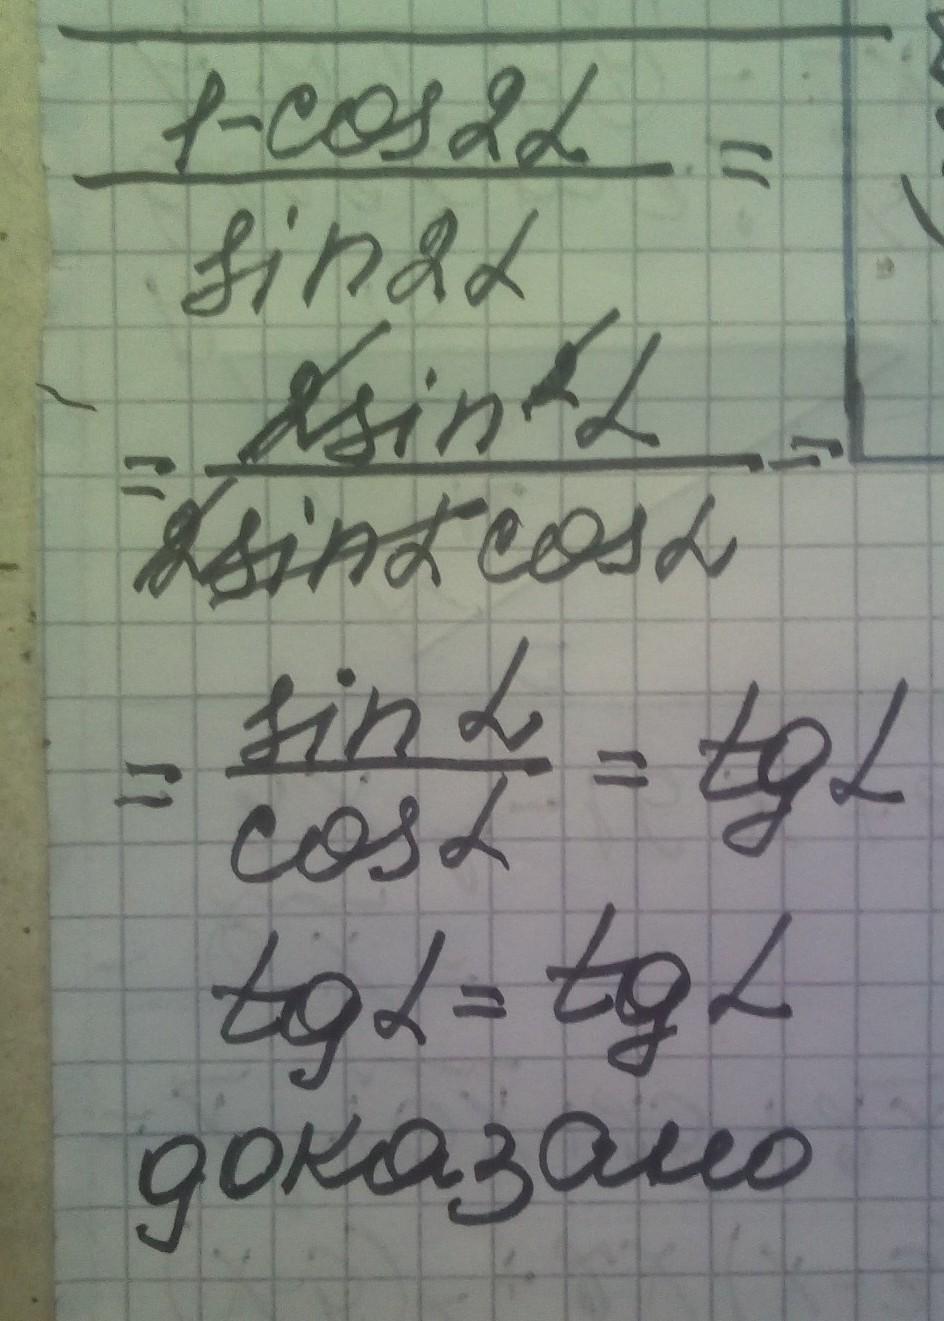 1-cos2α
sin2α =
= 2sin²α
2sinα cosα =
= sin α
cosα = tg α
tg α = tg α
доказано